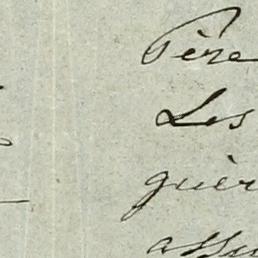 Père
Les
guèr
assu